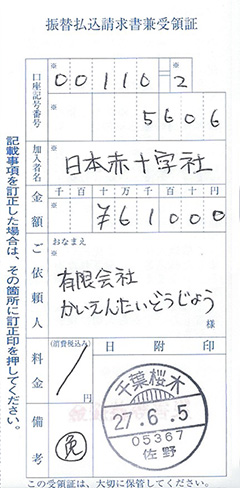 振替払込請求書兼受領証
口座記号番号
※
00110 2
※
5606
加入者名
※
日本赤十字社
金額
千百十万千百十円
※
¥61000
ご依頼人
おなまえ
※
有限会社
かいえんたいどうじょう
様
料金
(消費税込み)
円
日附印
千葉桜木
27.6.5
05367
佐野
備考
免
記載事項を訂正した場合は、その箇所に訂正印を押してください。
この受領証は、大切に保管してください。